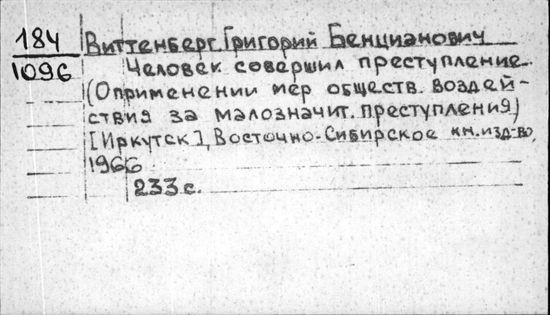 184 Виттенберг, Григорий Бенцианович
1096 Человек совершил преступление.
(О применении мер обществ. воздей-
ствия за малозначит. преступления)
[Иркутск], Восточно-Сибирское кн. изд-во,
1966
233 с.